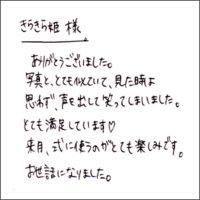 きらきら姫 様
ありがとうございました。
写真と、とても似ていて、見た時よ
思わず、声を出して笑ってしまいました。
とても満足しています♡
来月、式に使うのがとても楽しみです。
お世話になりました。